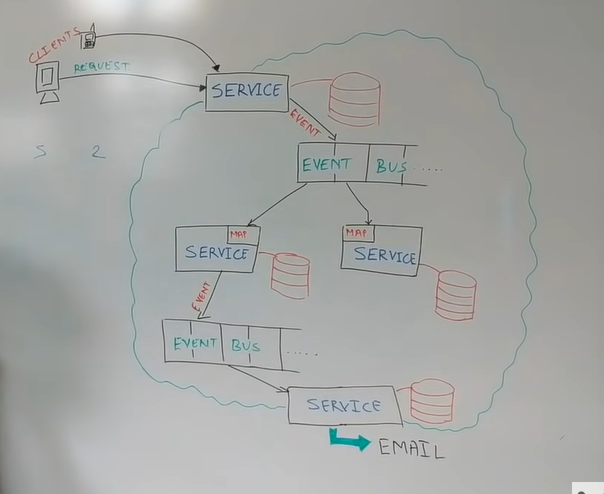 CLIENTS
REQUEST
SERVICE
EVENT
EVENT BUS ......
S 2
MAP
SERVICE
MAP
SERVICE
EVENT
EVENT BUS .....
SERVICE
EMAIL